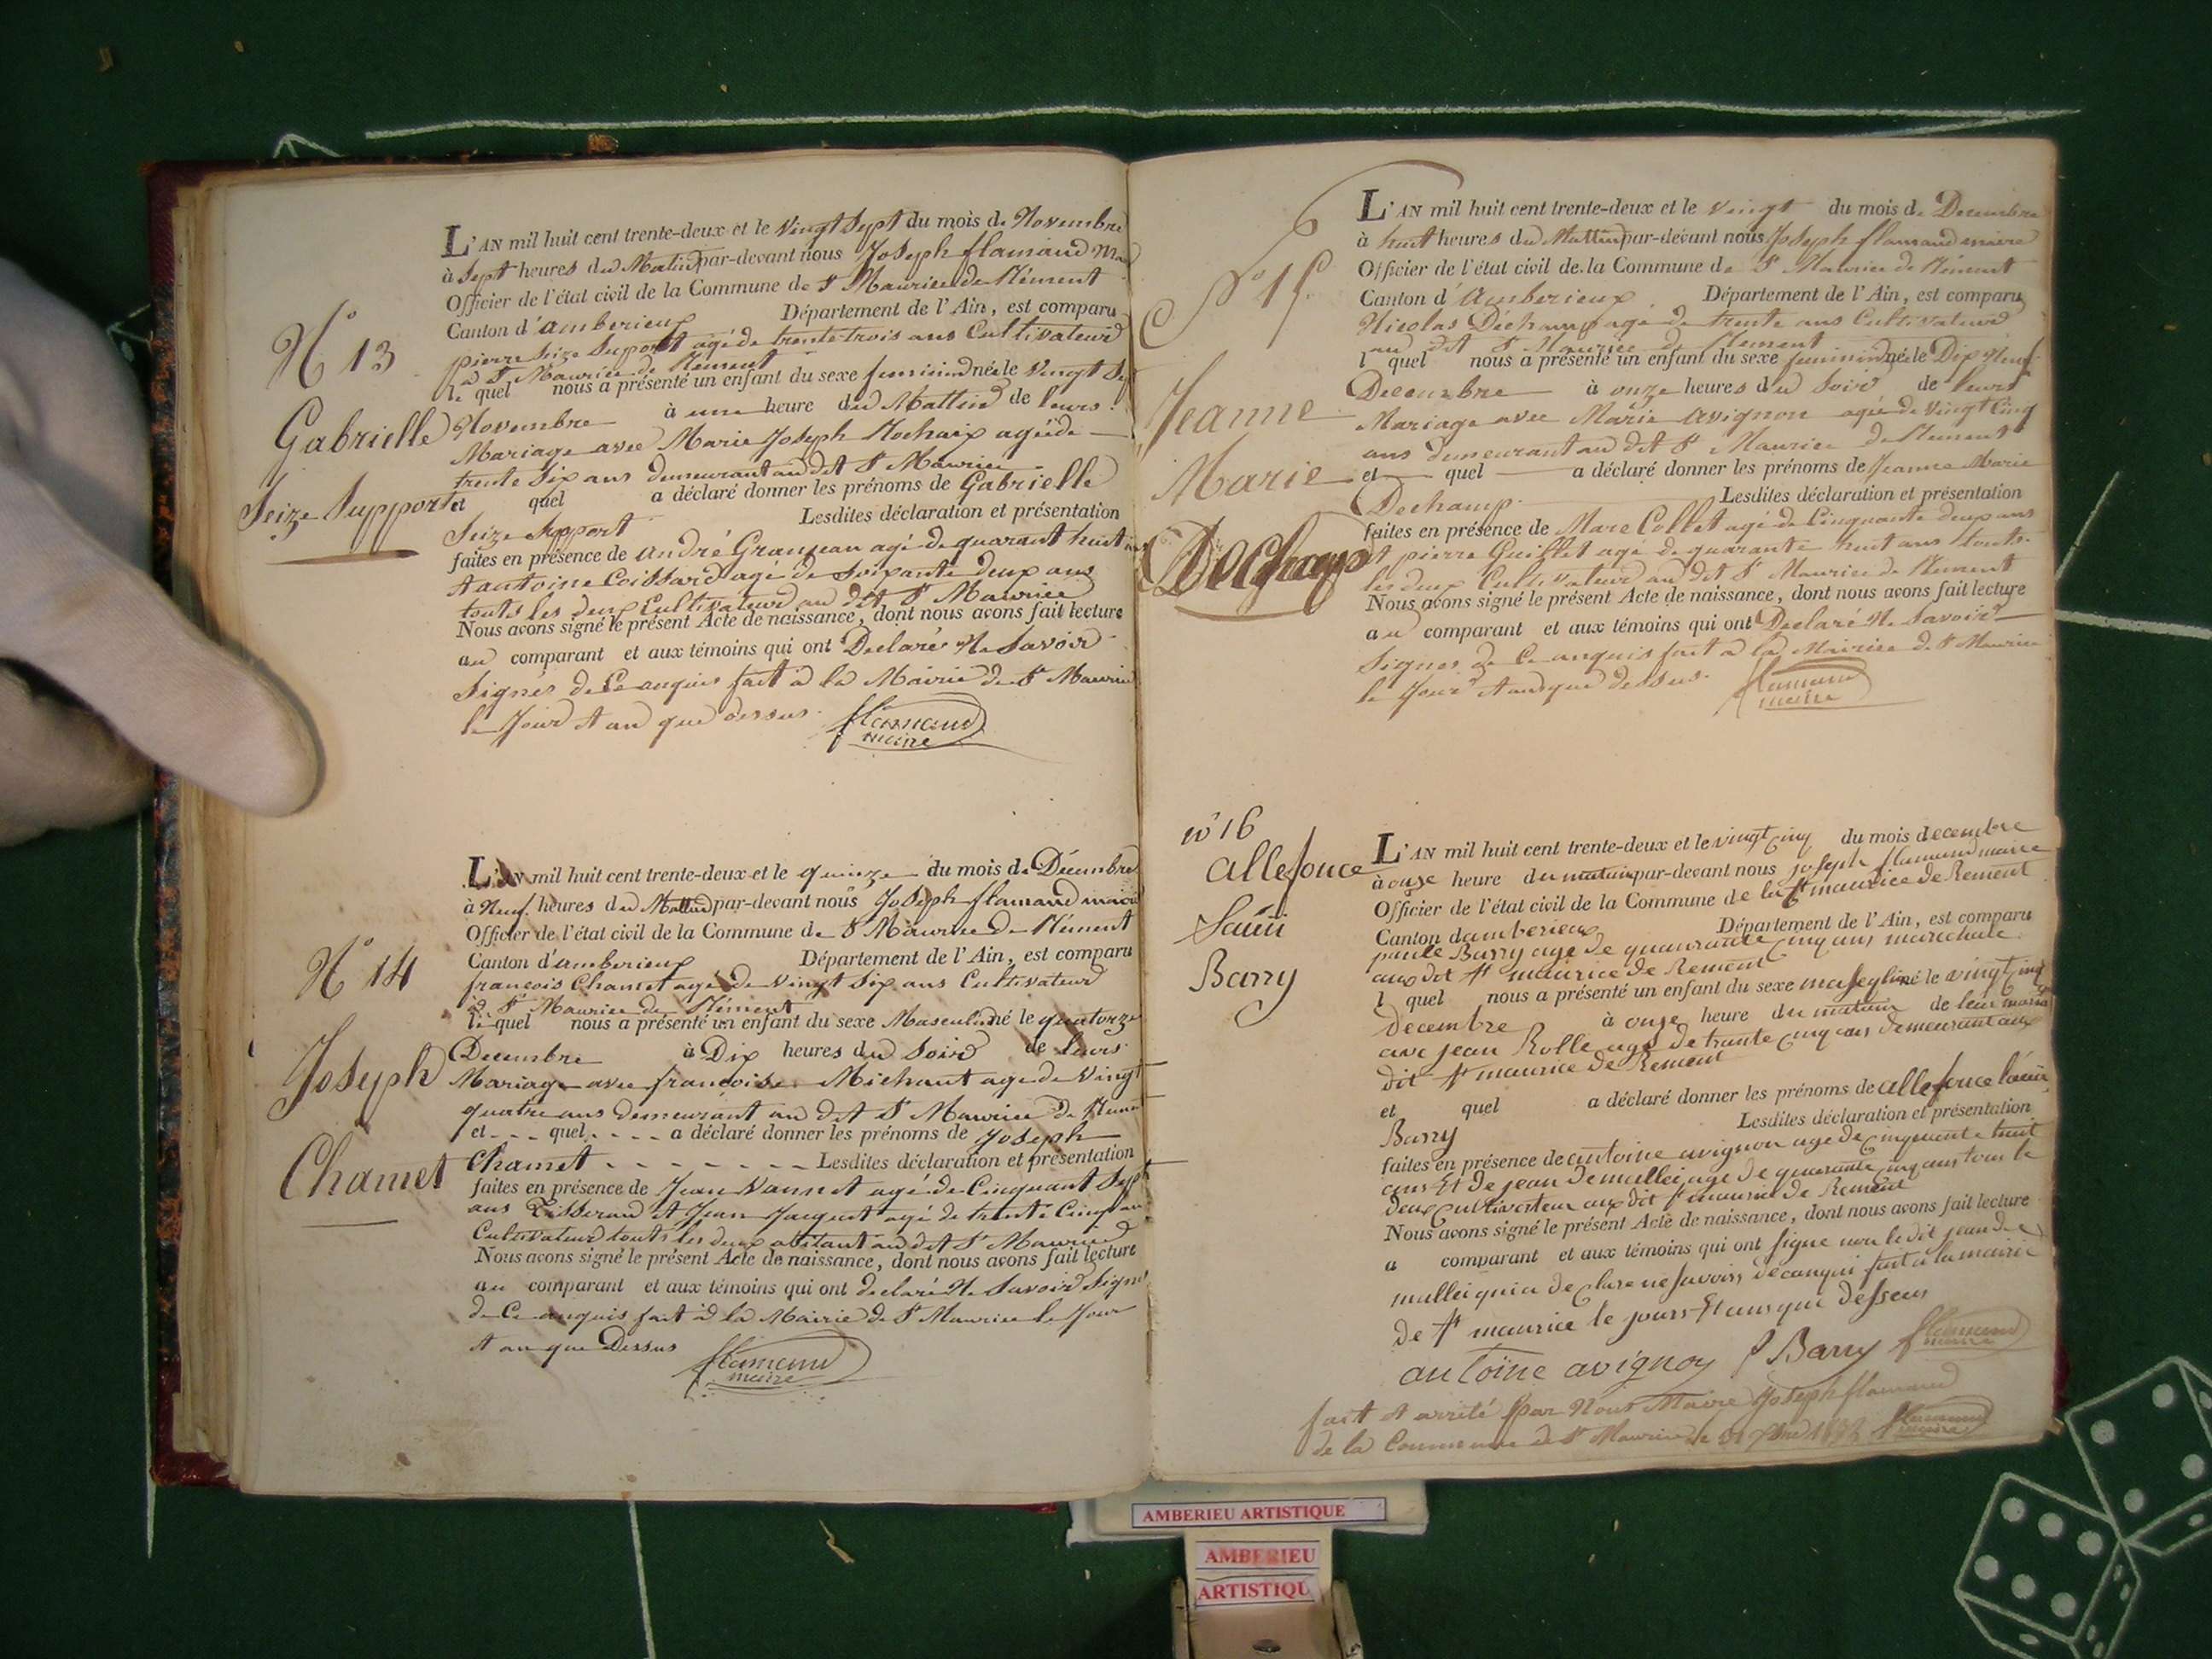 N° 13
Gabrielle
Seize Support
L'AN mil huit cent trente-deux et le vingt Sept du mois de Novembre
à Sept heures du Matin par-devant nous Joseph flamand
Officier de l'état civil de la Commune de St Maurice de Rément
Canton d'amberieux Département de l'Ain, est comparu
pierre Seize Support agé de trente trois ans Cultivateur
à St Maurice de Rément
le quel nous a présenté un enfant du sexe feminin né le Vingt Sept
Novembre à une heure du Mattin de leurs
Mariage avec Marie Joseph Rochaix agée de
trente Six ans demeurant au dit St Maurice
et quel a déclaré donner les prénoms de Gabrielle
Seize Support Lesdites déclaration et présentation
faites en présence de André Granjean agé de quarant huit ans
et antoine Coissard agé de Soixante deux ans
touts les deux Cultivateur au dit St Maurice
Nous avons signé le présent Acte de naissance, dont nous avons fait lecture
au comparant et aux témoins qui ont Declaré Ne Savoir
Signés de Ce anquis fait à la Mairie de St Maurice
le Jour et an que dessus.
flamand
maire
N° 14
Joseph
Chamet
L'AN mil huit cent trente-deux et le quinze du mois de Décembre
à Neuf heures du Mattin par-devant nous Joseph flamand maire
Officier de l'état civil de la Commune de St Maurice de Rément
Canton d'amberieux Département de l'Ain, est comparu
francois Chamet agé de vingt Six ans Cultivateur
à St Maurice de Rément
le quel nous a présenté un enfant du sexe Masculin né le quatorze
Decembre à Dix heures du Soir de leurs
Mariage avec francoise Michaut age de Vingt
quatre ans demeurant au dit St Maurice de Rément
et - - - quel - - - - a déclaré donner les prénoms de Joseph
Chamet - - - - - - - - Lesdites déclaration et présentation
faites en présence de Jean Vannet agé de Cinquant Sept
ans Tisserand et Jean Jacquet agé de trente Cinq ans
Cultivateur touts les deux abitant au dit St Maurice
Nous avons signé le présent Acte de naissance, dont nous avons fait lecture
au comparant et aux témoins qui ont declaré Ne Savoir Signé
de Ce anquis fait à la Mairie de St Maurice le Jour
et an que Dessus
flamand
maire
N° 15
Jeanne
Marie
Dechamp
L'AN mil huit cent trente-deux et le vingt du mois de Decembre
à huit heures du Mattin par-devant nous Joseph flamand maire
Officier de l'état civil de la Commune de St Maurice de Rément
Canton d'Amberieux Département de l'Ain, est comparu
Nicolas Déchamp agé de trente ans Cultivateur
au dit St Maurice de Rément
l quel nous a présenté un enfant du sexe feminin né le Dix Neuf
Decembre à onze heures du Soir de leurs
Mariage avec Marie Avignon agée de Vingt Cinq
ans demeurant au dit St Maurice de Rément
et quel a déclaré donner les prénoms de Jeanne Marie
Dechamp. Lesdites déclaration et présentation
faites en présence de Marc Collet agé de Cinquante deux ans
et pierre Guillet agé de quarante huit ans touts
les deux Cultivateur au dit St Maurice de Rément
Nous avons signé le présent Acte de naissance, dont nous avons fait lecture
au comparant et aux témoins qui ont Declaré Ne Savoir
Signer de Ce anquis fait à la Mairie de St Maurice
le Jour et an que dessus.
flamand
maire
n° 16
allefonce
Barry
L'AN mil huit cent trente-deux et le vingt cinq du mois decembre
à onze heure du matin par-devant nous joseph flamand maire
Officier de l'état civil de la Commune de la St maurice de Rement
Canton damberieux Département de l'Ain, est comparu
paule Barry age de quaurante cinq ans marechale
aux dit St maurice de Rement
l quel nous a présenté un enfant du sexe masqulin né le vingt cinq
decembre à onze heure du matin de leur
avec jean Rolle age de trante cinq ans demeurant aux
dit St maurice de Rement
et quel a déclaré donner les prénoms de allefonce
Barry Lesdites déclaration et présentation
faites en présence de antoine avignon age de cinquente huit
ans Et de jean Demullei age de quarante cinq ans tous le
deux cultiverteur aux dit St maurice de Rement
Nous avons signé le présent Acte de naissance, dont nous avons fait lecture
a comparant et aux témoins qui ont signe non le dit jean de
mullei qui a declare ne savoirs de canqui fait a la mairie
de St maurice le jours Et ans que desseus
antoine avignon P Barry flamand
maire
fait et arrêté par Nous Maire Joseph flamand
de la Commune de St Maurice le 31 Xbre 1832 flamand
maire
AMBERIEU ARTISTIQUE
AMBERIEU
ARTISTIQU